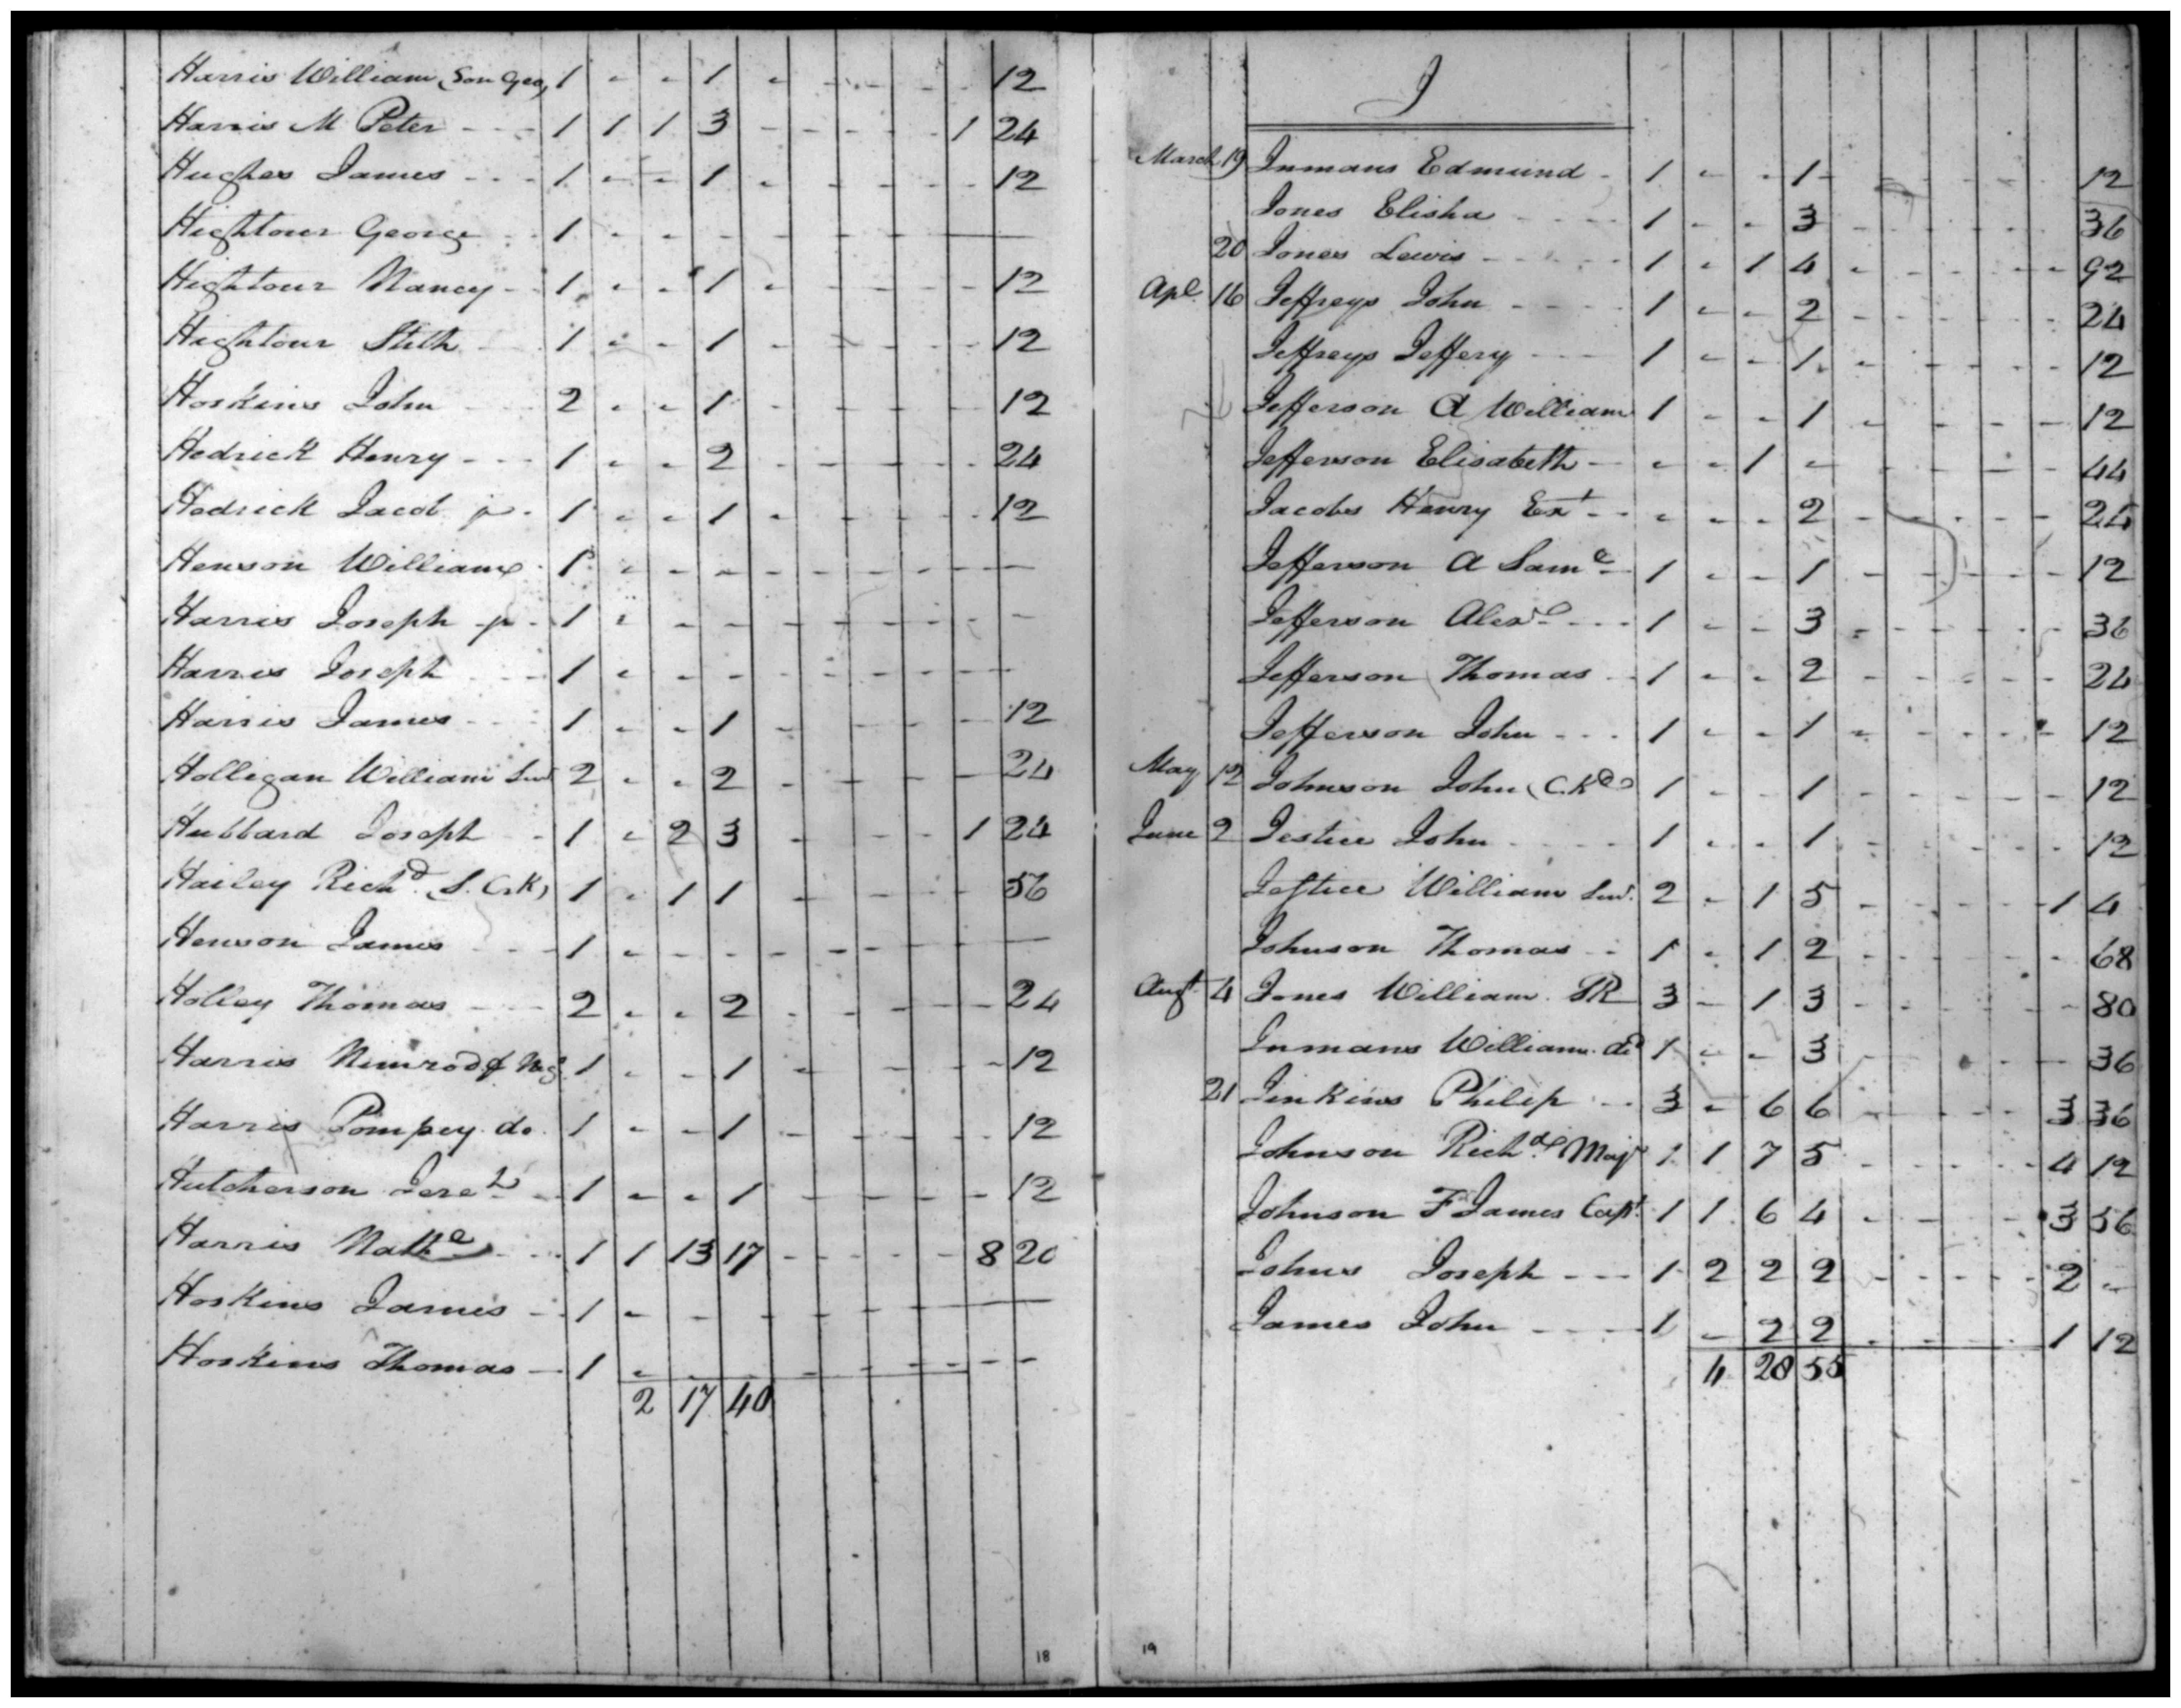 Harris William (Son Geo) 1 - - 1 - - - - - 12
Harris M Peter - - - 1 1 1 3 - - - - 1 24
Hughes James - - - 1 - - 1 - - - - - 12
Hightour George - - 1 - - - - - - - -
Hightour Nancy - - 1 - - 1 - - - - - 12
Hightour Stith - - 1 - - 1 - - - - - 12
Hoskins John - - 2 - - 1 - - - - - 12
Hedrick Henry - - - 1 - - 2 - - - - - 24
Hedrick Jacob jr - 1 - - 1 - - - - - 12
Henson William - 1 - - - - - - - - -
Harris Joseph jr - 1 - - - - - - - - -
Harris Joseph - - 1 - - - - - - - - -
Harris James - - 1 - - 1 - - - - - 12
Holligan William Senr 2 - - 2 - - - - - 24
Hubbard Joseph - 1 - 2 3 - - - - 1 24
Hailey Richd (S. Crk) 1 - 1 1 - - - - 56
Henson James - - - 1 - - - - - - - - -
Holley Thomas - - - 2 - - 2 - - - - - 24
Harris Nimrod f Neg 1 - - 1 - - - - - 12
Harris Pompey do. 1 - - 1 - - - - - 12
Hutcherson Jereh - 1 - - 1 - - - - - 12
Harris Nathl - - - 1 1 13 17 - - - - - 8 20
Hoskins James - 1 - - - - - - - -
Hoskins Thomas - 1 - - - - - - - -
2 17 40
18
J
March 19 Inmans Edmund - 1 - - 1 - - - - - 12
Jones Elisha - - - 1 - - 3 - - - - - 36
20 Jones Lewis - - - 1 - 1 4 - - - - - 92
Apl. 16 Jeffreys John - - - 1 - - 2 - - - - - 24
Jeffreys Jeffery - - - 1 - - 1 - - - - - 12
Jefferson A William 1 - - 1 - - - - - 12
Jefferson Elisabeth - - - 1 - - - - - - 44
Jacobs Henry Ext - - - - - 2 - - - - - 24
Jefferson A Saml - 1 - - 1 - - - - - 12
Jefferson Alexr - - - 1 - - 3 - - - - - 36
Jefferson Thomas - - 1 - - 2 - - - - - 24
Jefferson John - - - 1 - - 1 - - - - - 12
May 12 Johnson John (C.K) 1 - - 1 - - - - - 12
June 2 Jestice John - - - 1 - - 1 - - - - - 12
Jestice William Senr. 2 - 1 5 - - - - 1 4
Johnson Thomas - - 1 - 1 2 - - - - - 68
Augt. 4 Jones William SR 3 - 1 3 - - - - - 80
Inmans William. do 1 - - 3 - - - - - 36
21 Jinkins Philip - - 3 - 6 6 - - - - 3 36
Johnson Richd. Majr 1 1 7 5 - - - - 4 12
Johnson F James Capt. 1 1 6 4 - - - - 3 36
Johns Joseph - - - 1 2 2 2 - - - - 2 -
James John - - - - 1 - 2 2 - - - - 1 12
4 28 55
19